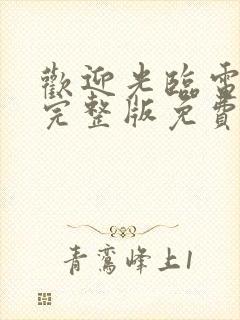 歡迎光臨電
完整版免費
青鸞峰上1